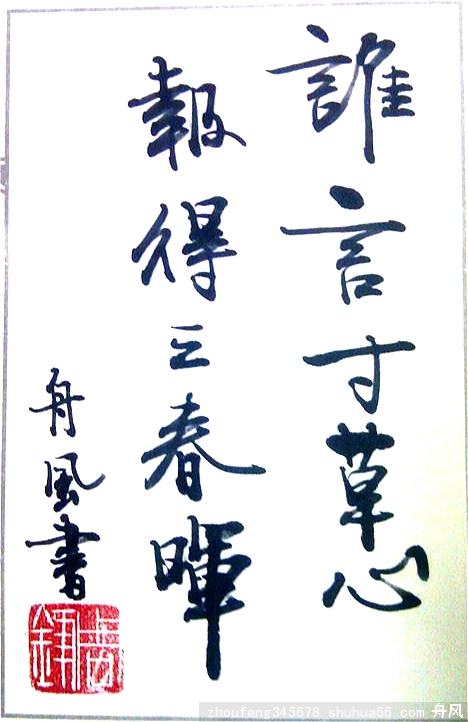 誰言寸草心
報得三春暉
舟風書
zhoufeng345678 shuhua66.com 舟风